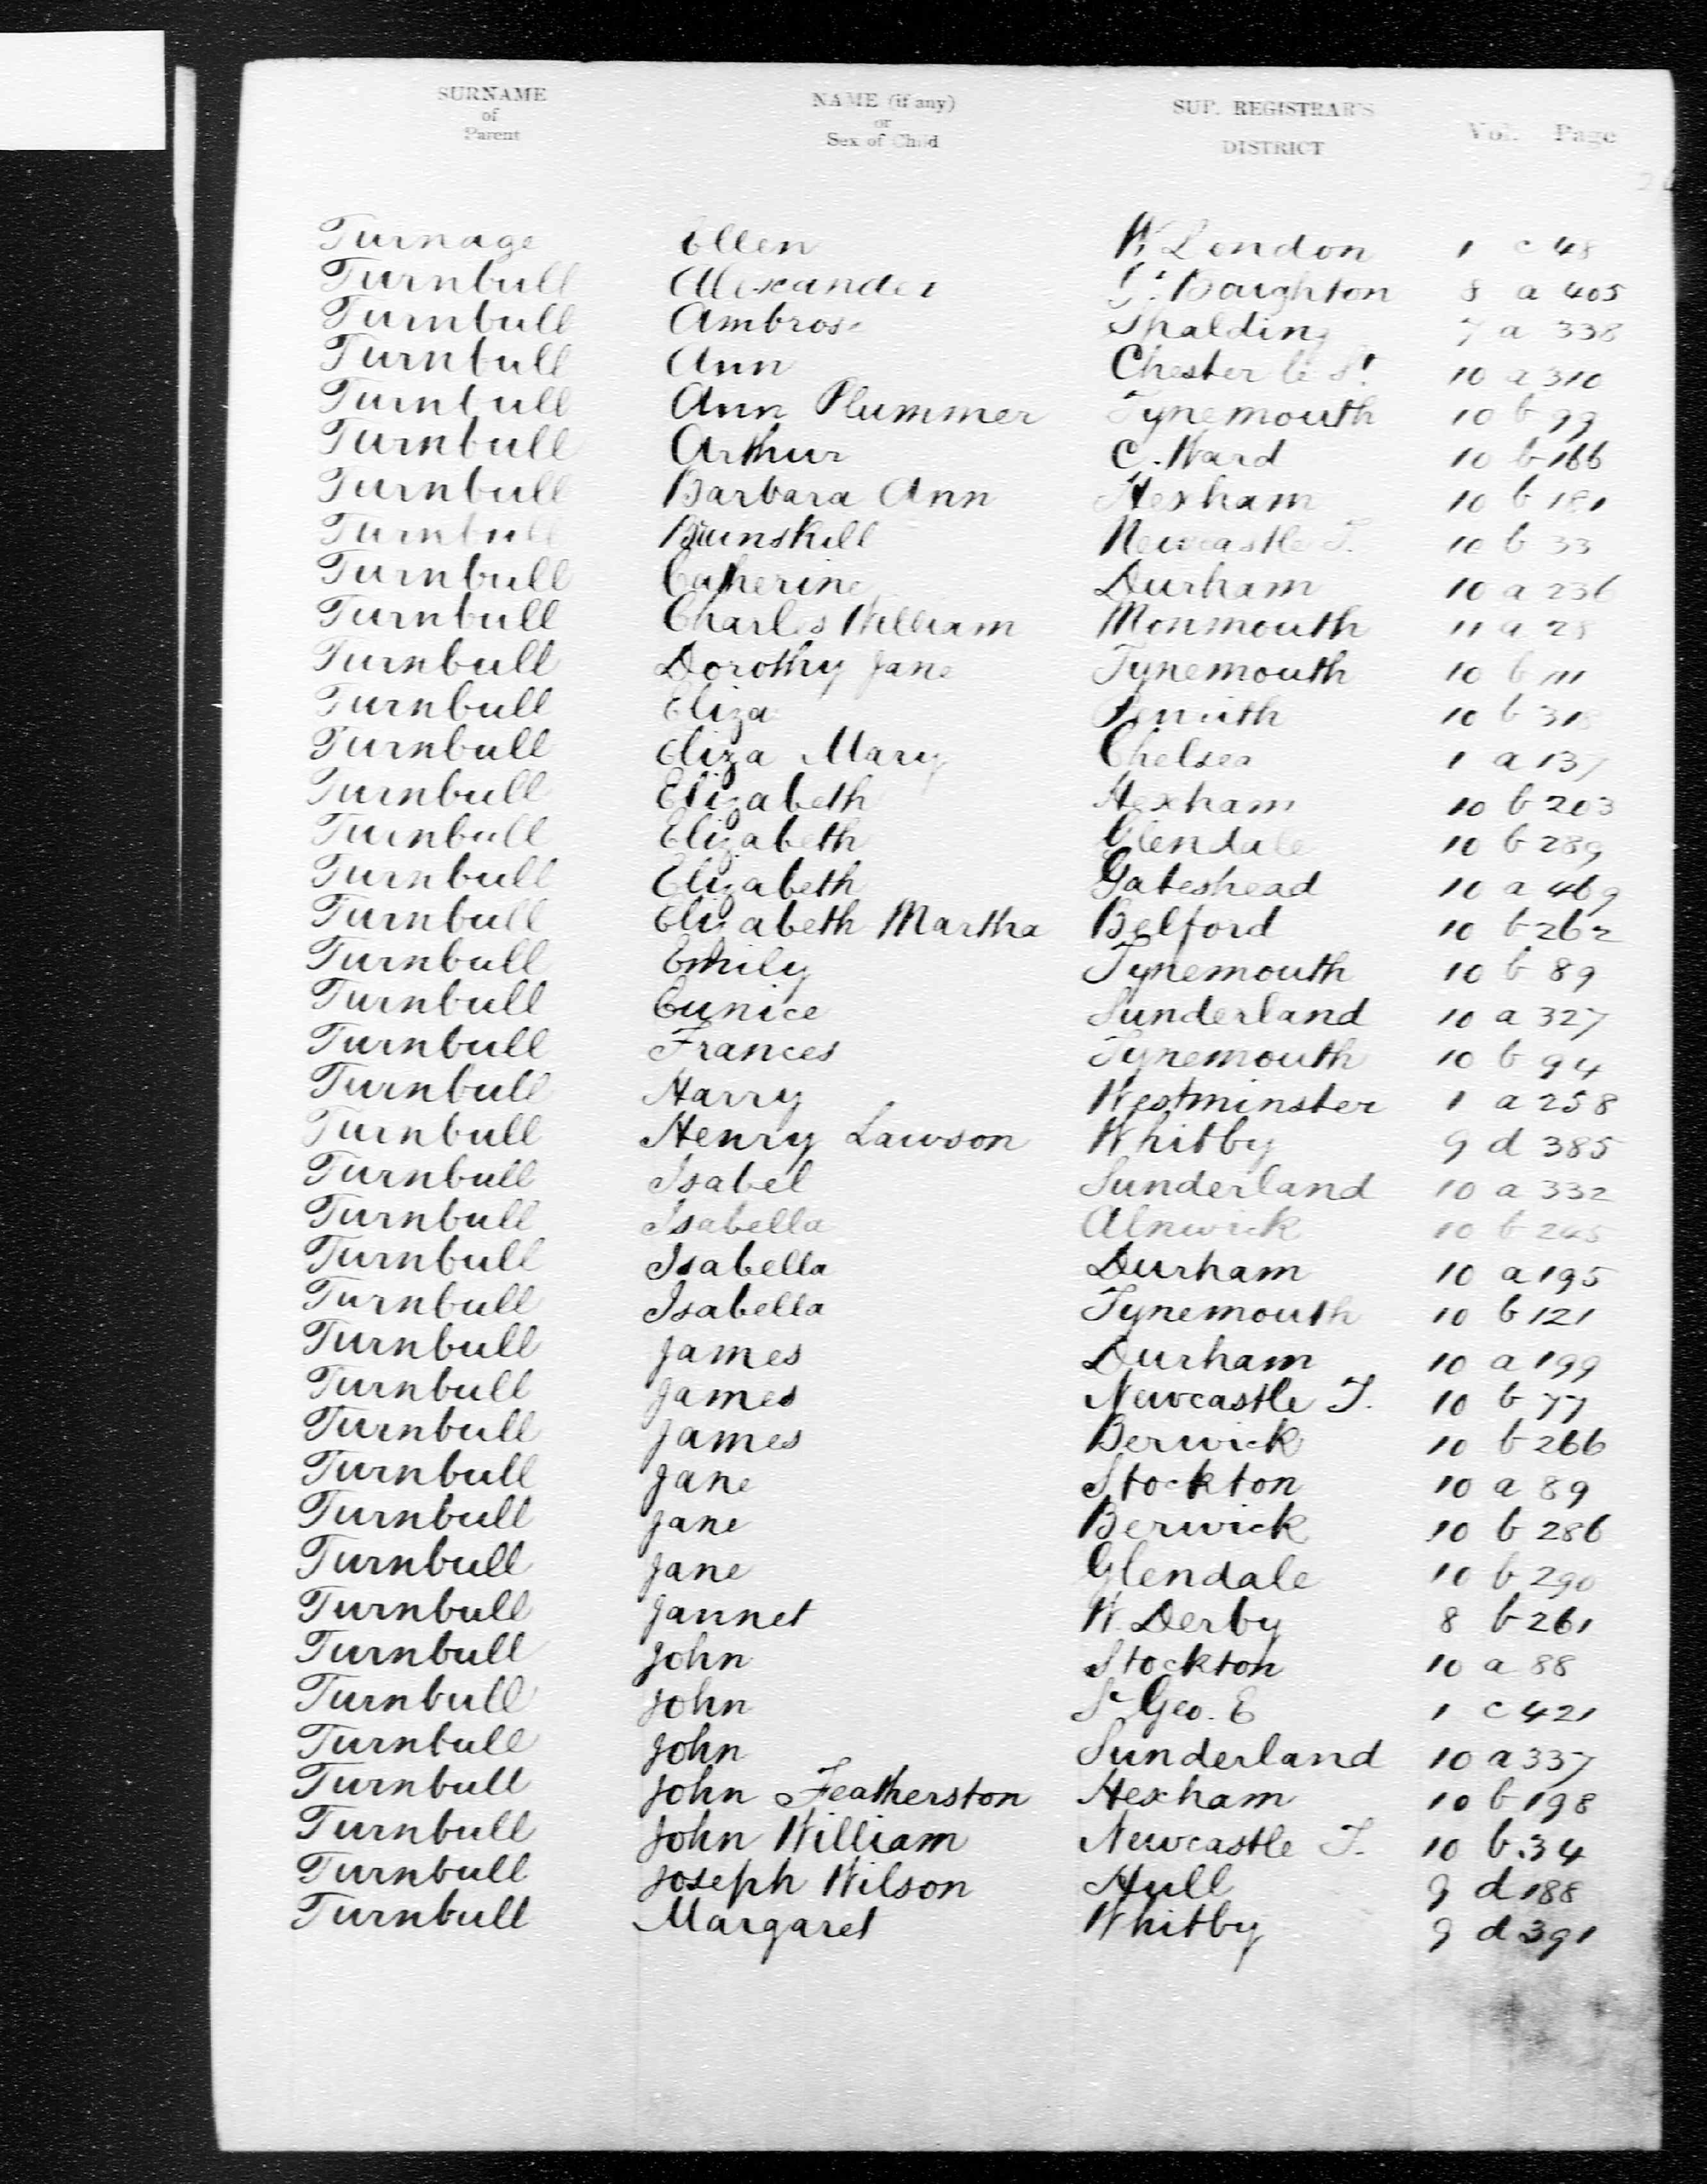 SURNAME of Parent NAME (if any) or Sex of Child SUP. REGISTRAR'S DISTRICT Vol. Page
Turnage Ellen W. London 1 c 48
Turnbull Alexander Gt. Boughton 8 a 405
Turnbull Ambrose Spalding 7 a 338
Turnbull Ann Chester le St. 10 a 310
Turnbull Ann Plummer Tynemouth 10 b 99
Turnbull Arthur C. Ward 10 b 166
Turnbull Barbara Ann Hexham 10 b 181
Turnbull Brunskill Newcastle T. 10 b 33
Turnbull Catherine Durham 10 a 236
Turnbull Charles William Monmouth 11 a 28
Turnbull Dorothy Jane Tynemouth 10 b 111
Turnbull Eliza Penrith 10 b 318
Turnbull Eliza Mary Chelsea 1 a 137
Turnbull Elizabeth Hexham 10 b 203
Turnbull Elizabeth Glendale 10 b 289
Turnbull Elizabeth Gateshead 10 a 469
Turnbull Elizabeth Martha Belford 10 b 262
Turnbull Emily Tynemouth 10 b 89
Turnbull Eunice Sunderland 10 a 327
Turnbull Frances Tynemouth 10 b 94
Turnbull Harry Westminster 1 a 258
Turnbull Henry Lawson Whitby 9 d 385
Turnbull Isabel Sunderland 10 a 332
Turnbull Isabella Alnwick 10 b 245
Turnbull Isabella Durham 10 a 195
Turnbull Isabella Tynemouth 10 b 121
Turnbull James Durham 10 a 199
Turnbull James Newcastle T. 10 b 77
Turnbull James Berwick 10 b 266
Turnbull Jane Stockton 10 a 89
Turnbull Jane Berwick 10 b 286
Turnbull Jane Glendale 10 b 290
Turnbull Jannet W. Derby 8 b 261
Turnbull John Stockton 10 a 88
Turnbull John St Geo. E 1 c 421
Turnbull John Sunderland 10 a 337
Turnbull John Featherston Hexham 10 b 198
Turnbull John William Newcastle T. 10 b. 34
Turnbull Joseph Wilson Hull 9 d 188
Turnbull Margaret Whitby 9 d 391